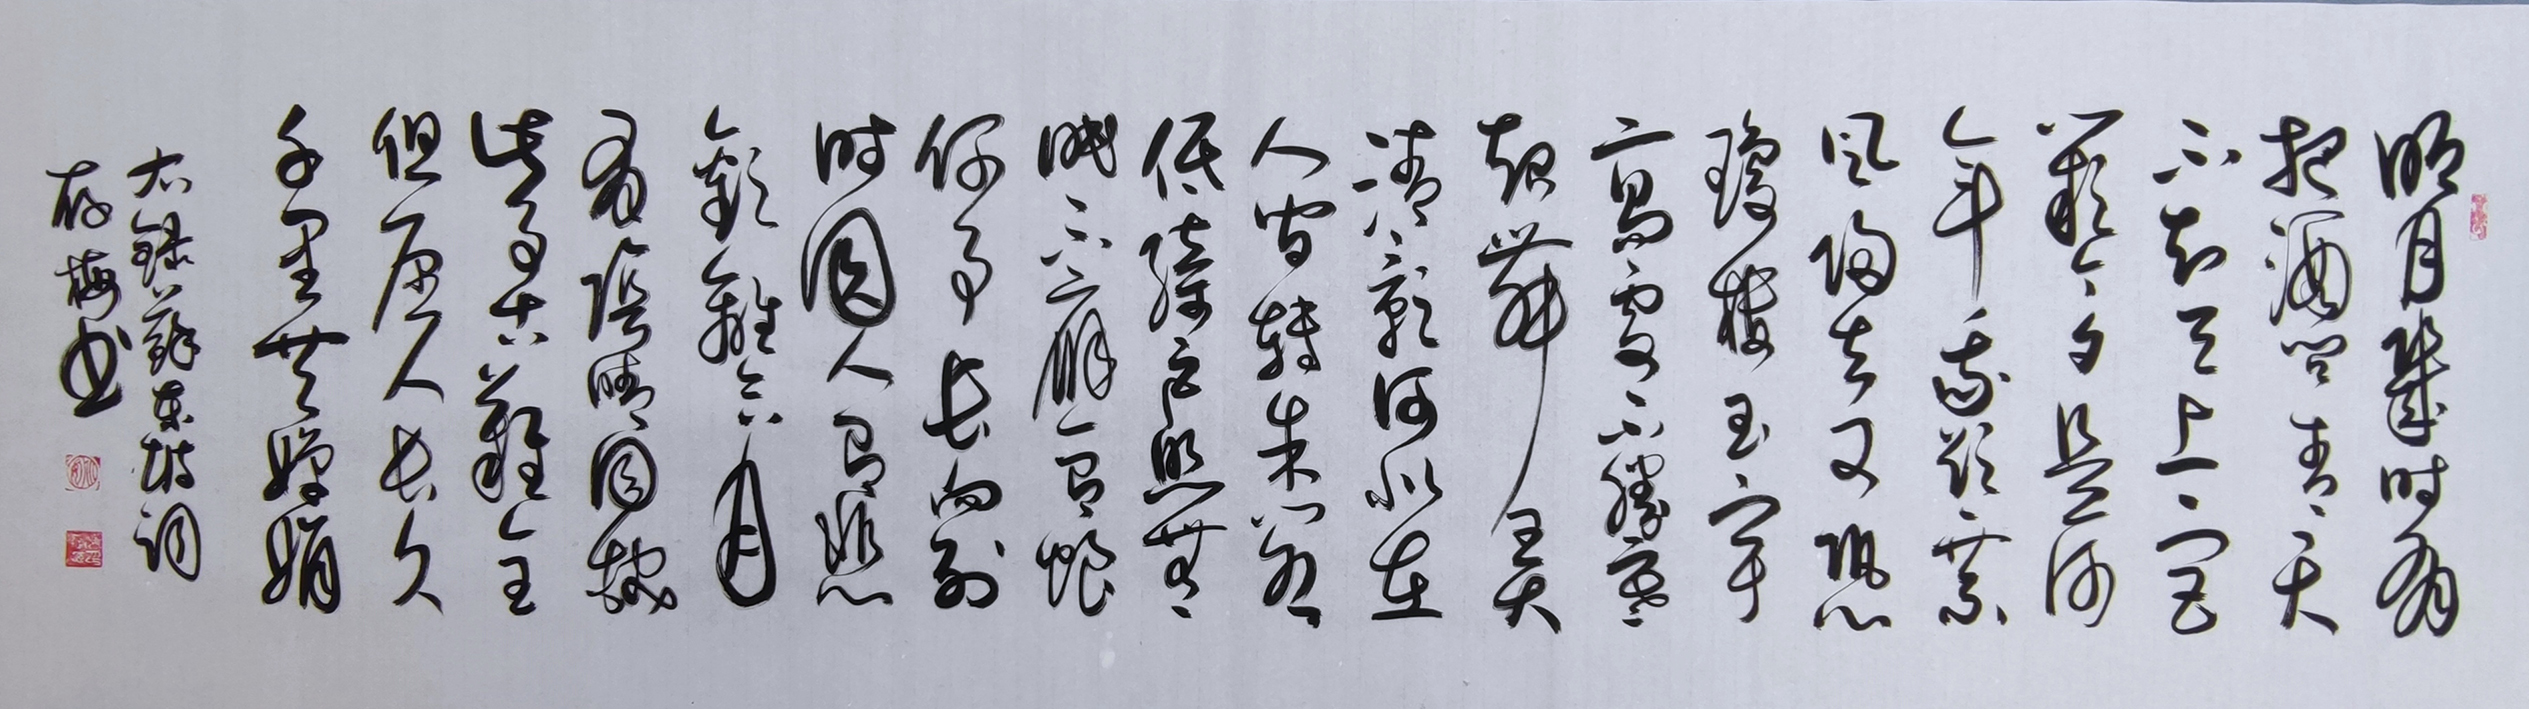 明月幾时有
把酒问青天
不知天上宫
阙今夕是何
年我欲乘
风归去又恐
琼楼玉宇
高處不勝寒
起舞弄
清影何似在
人间轉朱阁
低绮户照無
眠不應有恨
何事长向别
时圆人有悲
歡離合月
有陰晴圆缺
此事古難全
但愿人长久
千里共婵娟
右錄蘇东坡词
存梅书